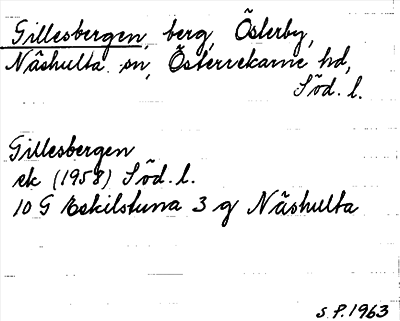 Gillesbergen, berg, Österby,
Näshulta sn, Österrekarne hd,
Söd. l.
Gillesbergen
ek (1958) Söd. l.
10 G Eskilstuna 3 g Näshulta
S.P. 1963